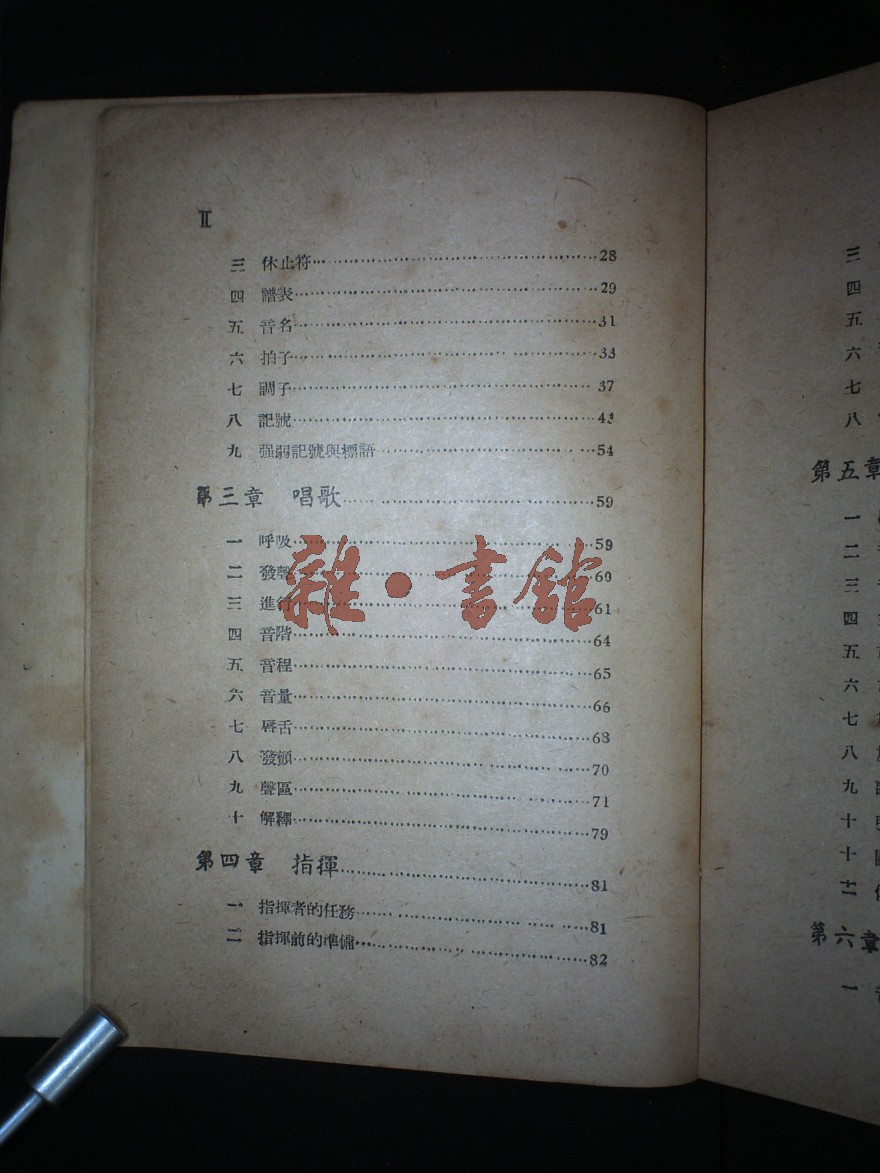 II
三 休止符……28
四 譜表……29
五 音名……31
六 拍子……33
七 調子……37
八 記號……43
九 强弱記號與標語……54
第三章 唱歌……59
一 呼吸……59
二 發聲……60
三 進行……61
四 音階……64
五 音程……65
六 音量……66
七 唇舌……68
八 發顫……70
九 聲區……71
十 解釋……79
第四章 指揮……81
一 指揮者的任務……81
二 指揮前的準備……82
雜·書館
三
四
五
六
七
八
第五章
一
二
三
四
五
六
七
八
九
十
十一
十二
第六章
一